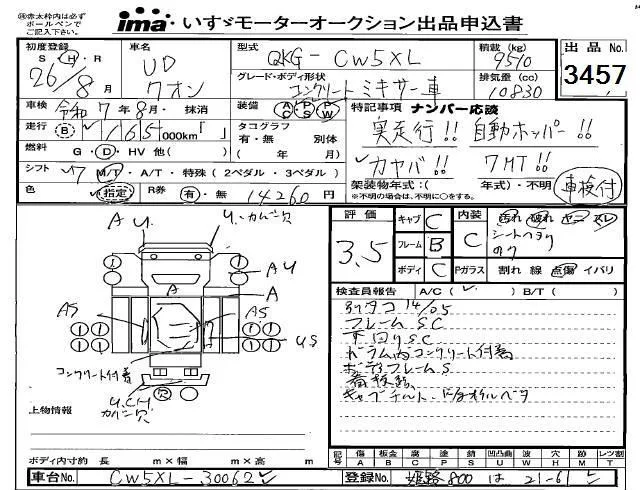 ㊟赤太枠内は必ず
ボールペンで
ご記入下さい。
ima いすゞモーターオークション出品申込書
初度登録 S・H・R 26/8月
車名 UD クオン
型式 QKG-CW5XL
グレード・ボディ形状 コンクリートミキサー車
積載(kg) 9510
排気量(cc) 10830
出品No. 3457
車検 令和7年8月・抹消
装備 A/C P/S P/W
特記事項 ナンバー応談
実走行!! 自動ホッパー!!
走行(B) 165,000km「 」
タコグラフ 有・無 別体
( 年 月)
燃料 G・D・HV 他( )
カヤバ!! 7MT!!
シフト 7 M/T・A/T・特殊(2ペダル・3ペダル)
架装物年式:( 年式)・不明
※不明の場合は、不明に○をする。
車検付
色 指定 R券 有・無 14260円
評価 3.5
キャブ C
フレーム B
ボディ C
内装 C
汚れ 破れ ヤニ スレ
シートヘタリ
Pガラス 割れ 線 点傷 イバリ
検査員報告 A/C( ) B/T( )
フレームSC
下回りSC
ドラム内コンクリート付着
ボディフレームS
A U
U、カバー穴
A U
A
A
AS
AS
US
コンクリート付着
U,CH
カバー穴
上物情報
ボディ内寸約 長 m×幅 m×高 m
記号 傷 A 板金 B 腐 C 塗 P 錆 S 凹凸曲 U 波 W 穴 H 跡 M レンズ割 T
車台No. CW5XL-30062
登録No. 姫路800 は 21-61